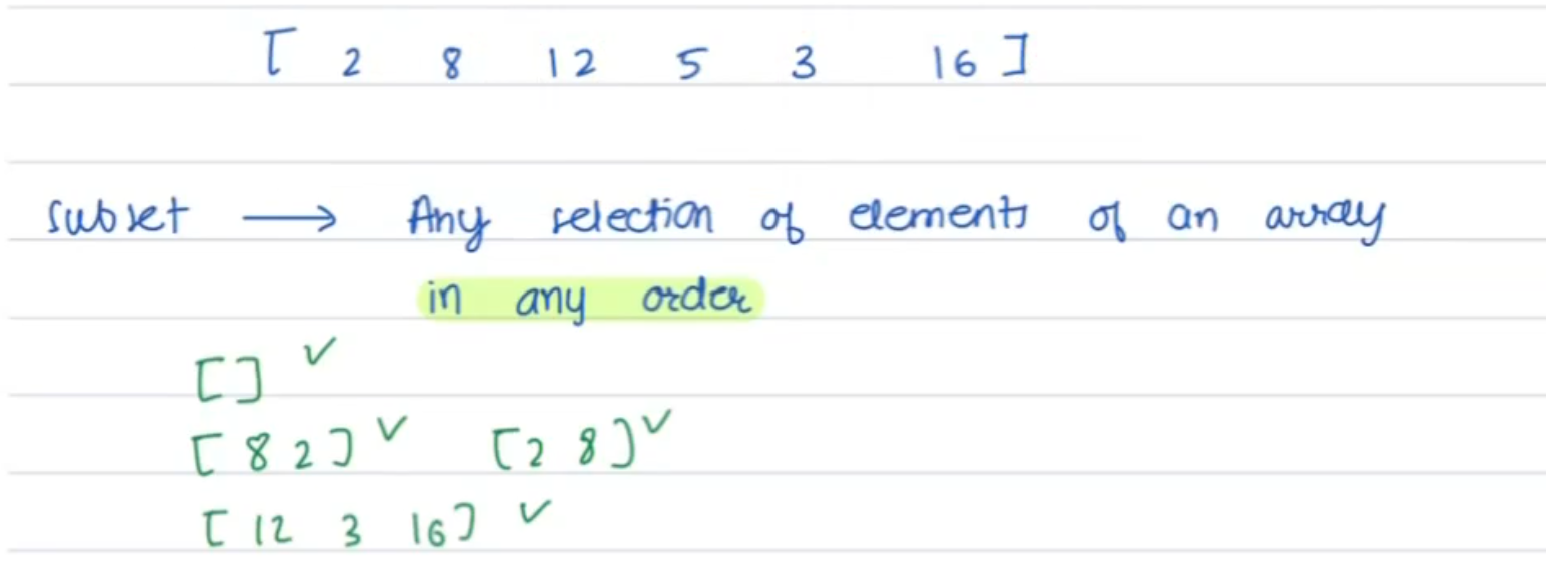 [ 2 8 12 5 3 16 ]
subset → Any selection of elements of an array
in any order
[] ✓
[ 8 2 ] ✓ [ 2 8 ] ✓
[ 12 3 16 ] ✓